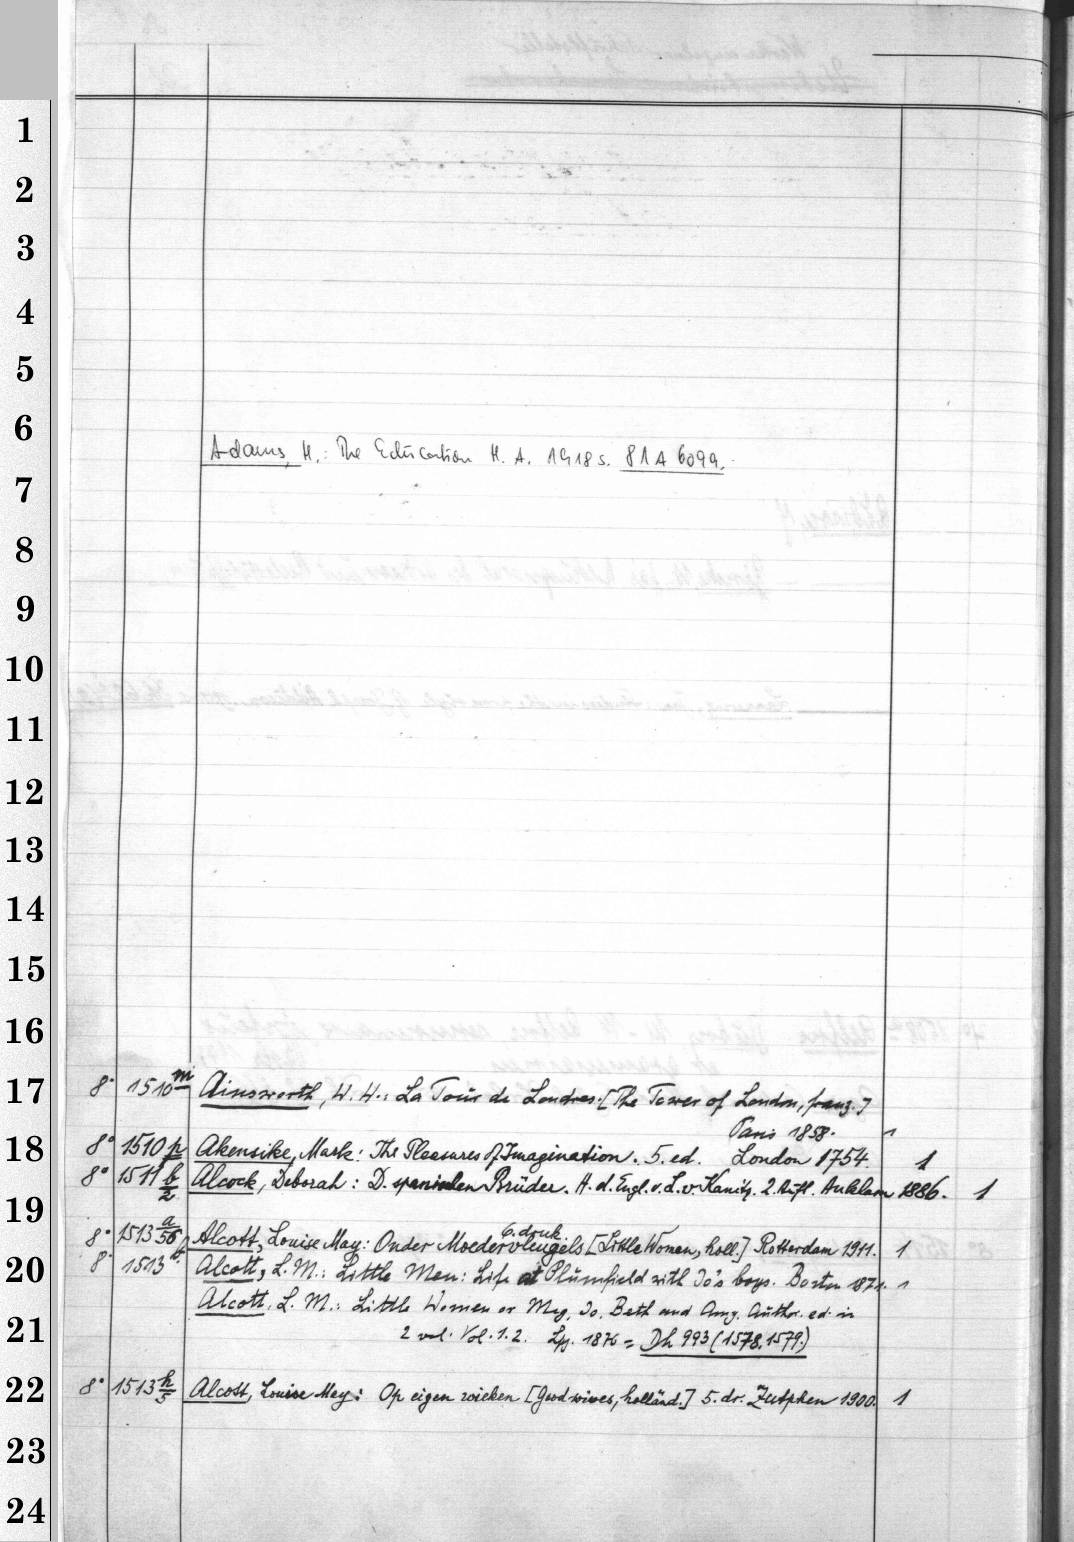 1
2
3
4
5
6
Adams, H.: The Education H. A. 1918 s. 81 A 6099.
7
8
9
10
11
12
13
14
15
16
17
8° 1510 m Ainsworth, W. H.: La Tour de Londres. [The Tower of London, franz.]
Paris 1858. 1
18
8° 1510 p Akenside, Mark: The Pleasures of Imagination. 5. ed. London 1754 1
8° 1511 b/2 Alcock, Deborah: D. spanischen Brüder. A. d. Engl. v. L. v. Kanitz. 2. Aufl. Anklam 1886. 1
19
8° 1513 a/56 Alcott, Louise May: Onder Moedervleugels [Little Women, holl.] 6. druk Rotterdam 1911. 1
20
8° 1513 Alcott, L. M.: Little Men: Life at Plumfield with Jo's boys. Boston 1871. 1
Alcott, L. M.: Little Women or Meg, Jo, Beth and Amy. Author. ed. in
21
2 vol. Vol. 1. 2. Lpz. 1876 = Dh 993 (1578. 1579.)
22
8° 1513 h/5 Alcott, Louise May: Op eigen wieken [Good wives, holländ.] 5. dr. Zutphen 1900. 1
23
24